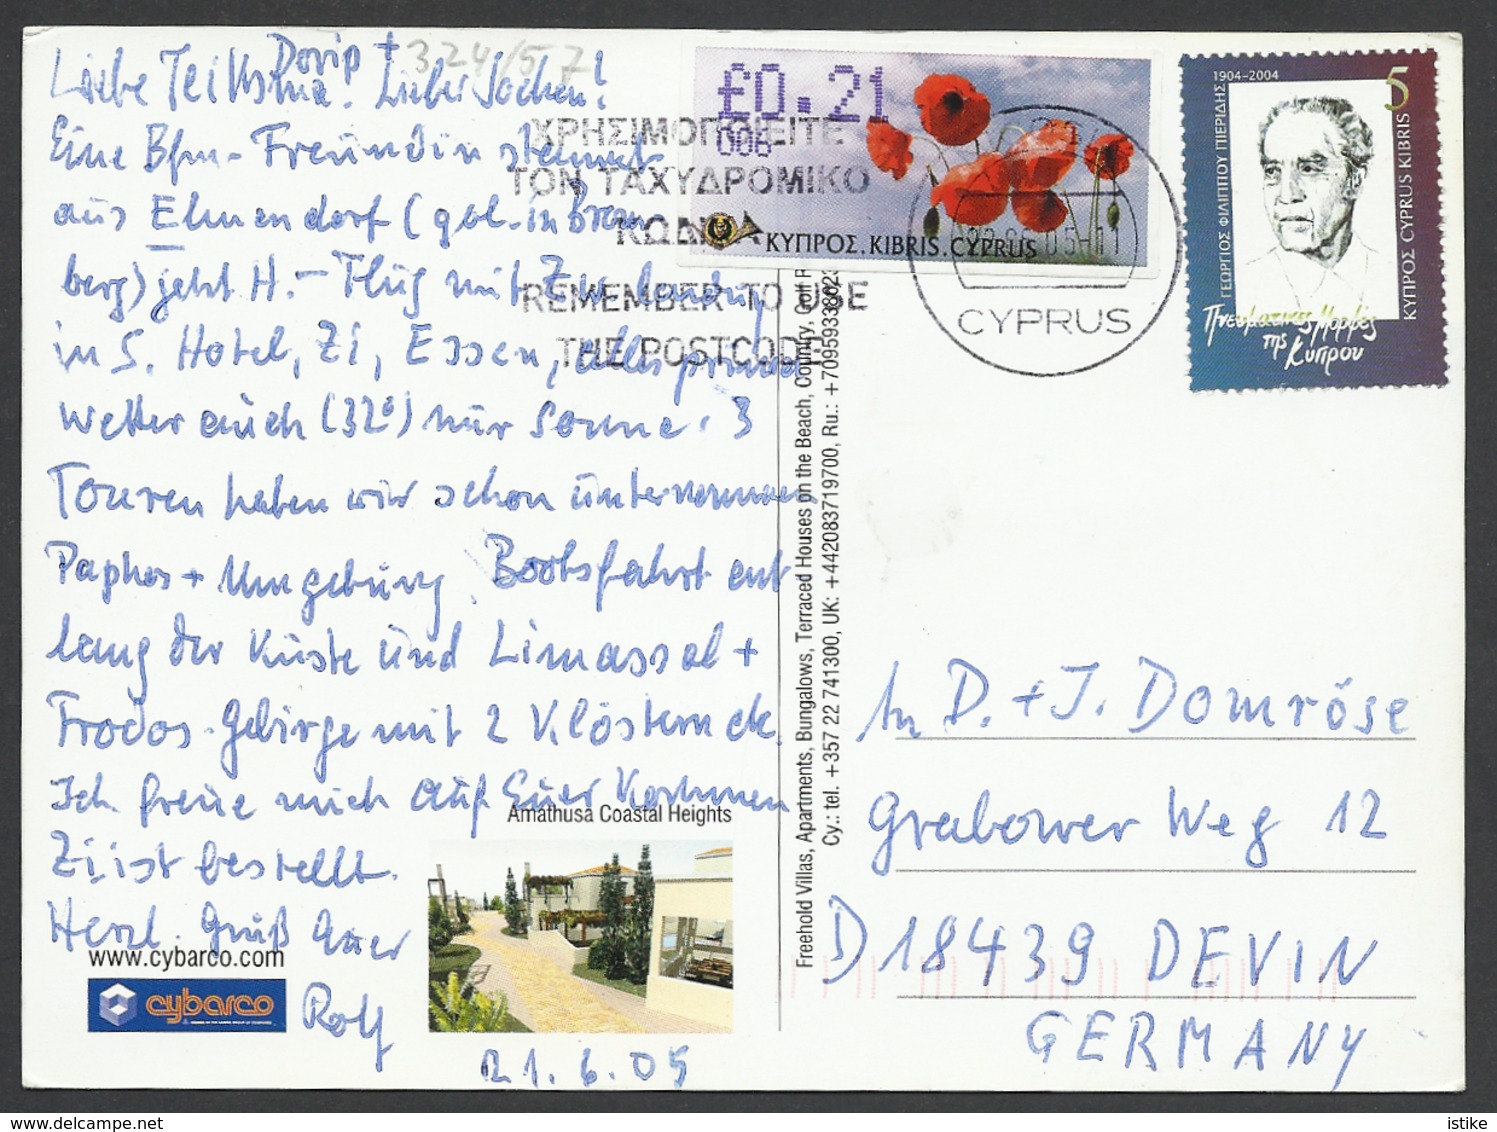 Doris +
324/57
Liebe ! Lieber Jochen!
Eine Bfm-Freundin stammt
aus Elmendorf (geb. in Brom
berg) jetzt H. - Flug mit Zw. landung
in S. Hotel, Zi, Essen, alles prima
Wetter auch (32°) nur Sonne. 3
Touren haben wir schon unternommen
Paphos + Umgebung, Bootsfahrt ent
lang der Küste und Limassol +
Troodos-Gebirge mit 2 Klöstern etc.
Ich freue mich auf Euer Kommen
Zi ist bestellt.
Herzl. Gruß Euer
Rolf
21.6.05
Amathusa Coastal Heights
www.cybarco.com
cybarco
Freehold Villas, Apartments, Bungalows, Terraced Houses on the Beach, Country, Golf R
Cy.: tel. +357 22 741300, UK: +442083719700, Ru.: +70959338623
£0.21
006
ΚΥΠΡΟΣ.KIBRIS.CYPRUS
ΧΡΗΣΙΜΟΠΟΙΕΙΤΕ
ΤΟΝ ΤΑΧΥΔΡΟΜΙΚΟ
ΚΩΔΙΚΑ
REMEMBER TO USE
THE POSTCODE
05-11
CYPRUS
1904-2004
5
ΓΕΩΡΓΙΟΣ ΦΙΛΙΠΠΟΥ ΠΙΕΡΙΔΗΣ
ΚΥΠΡΟΣ CYPRUS KIBRIS
Πνευματικες Μορφές
της
Κύπρου
An D. + J. Domröse
Grabower Weg 12
D 18439 DEVIN
GERMANY
istike